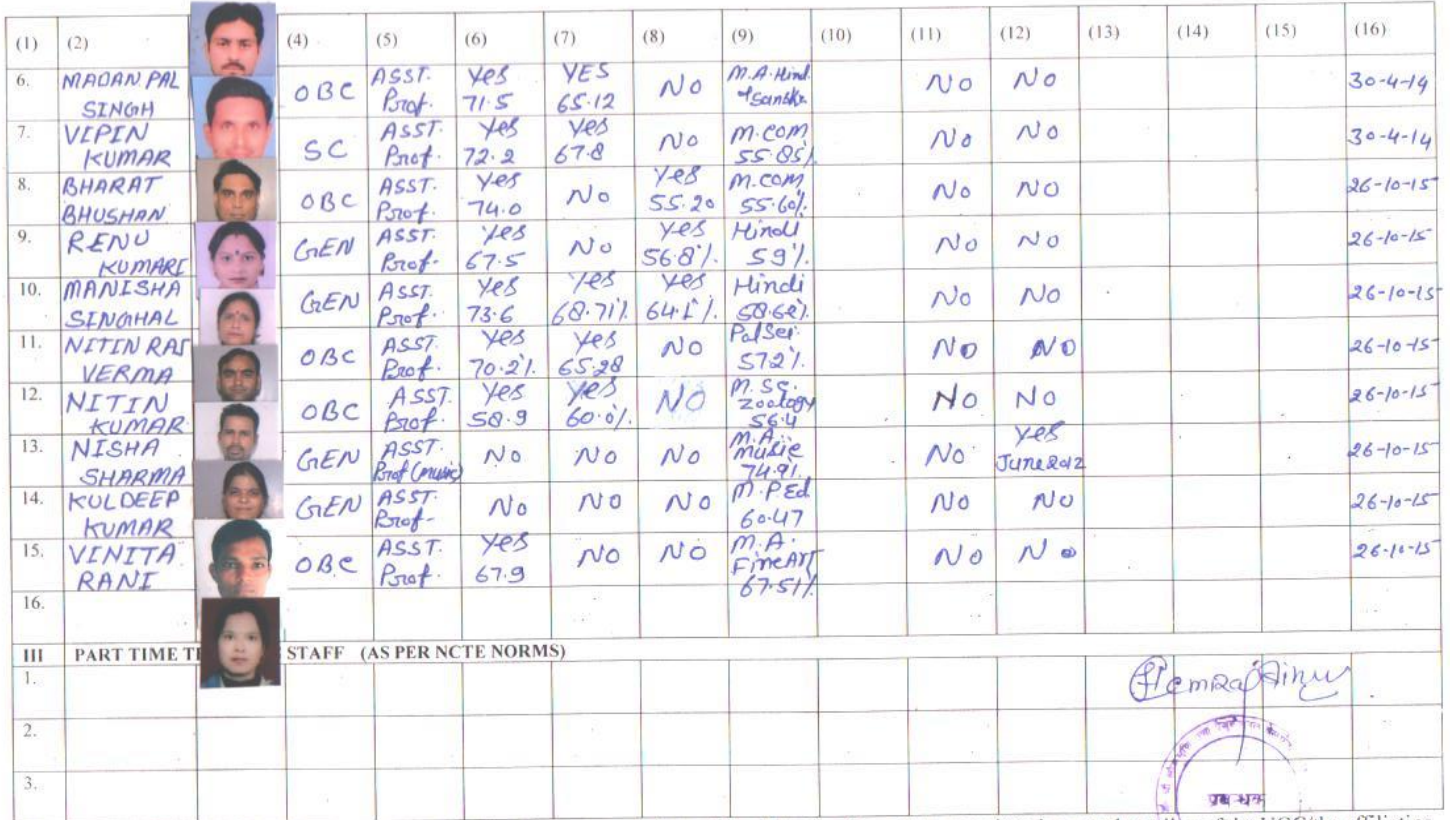 (1) (2) (4) (5) (6) (7) (8) (9) (10) (11) (12) (13) (14) (15) (16)
6. MADAN PAL SINGH OBC ASST. Prof. Yes 71.5 YES 65.12 NO M.A. Hind. & Sansk. NO NO 30-4-14
7. VIPIN KUMAR SC ASST. Prof. Yes 72.2 Yes 67.8 NO M.COM 55.85% NO NO 30-4-14
8. BHARAT BHUSHAN OBC ASST. Prof. Yes 74.0 NO Yes 55.20 M.COM 55.60% NO NO 26-10-15
9. RENU KUMARI GEN ASST. Prof. Yes 67.5 NO Yes 56.8% Hindi 59% NO NO 26-10-15
10. MANISHA SINGHAL GEN ASST. Prof. Yes 73.6 Yes 68.71% Yes 64.1% Hindi 58.62% NO NO 26-10-15
11. NITIN RAJ VERMA OBC ASST. Prof. Yes 70.2% Yes 65.28 NO PolSci. 57.2% NO NO 26-10-15
12. NITIN KUMAR OBC ASST. Prof. Yes 58.9 Yes 60.0% NO M.SC. Zoology 56.4 NO NO 26-10-15
13. NISHA SHARMA GEN ASST. Prof (music) NO NO NO M.A. music 74.91 NO Yes June 2012 26-10-15
14. KULDEEP KUMAR GEN ASST. Prof- NO NO NO M.P.Ed 60.47 NO NO 26-10-15
15. VINITA RANI OBC ASST. Prof. Yes 67.9 NO NO M.A. FineArt 67.51% NO NO 26-10-15
16.
III PART TIME STAFF (AS PER NCTE NORMS)
1.
2.
3.